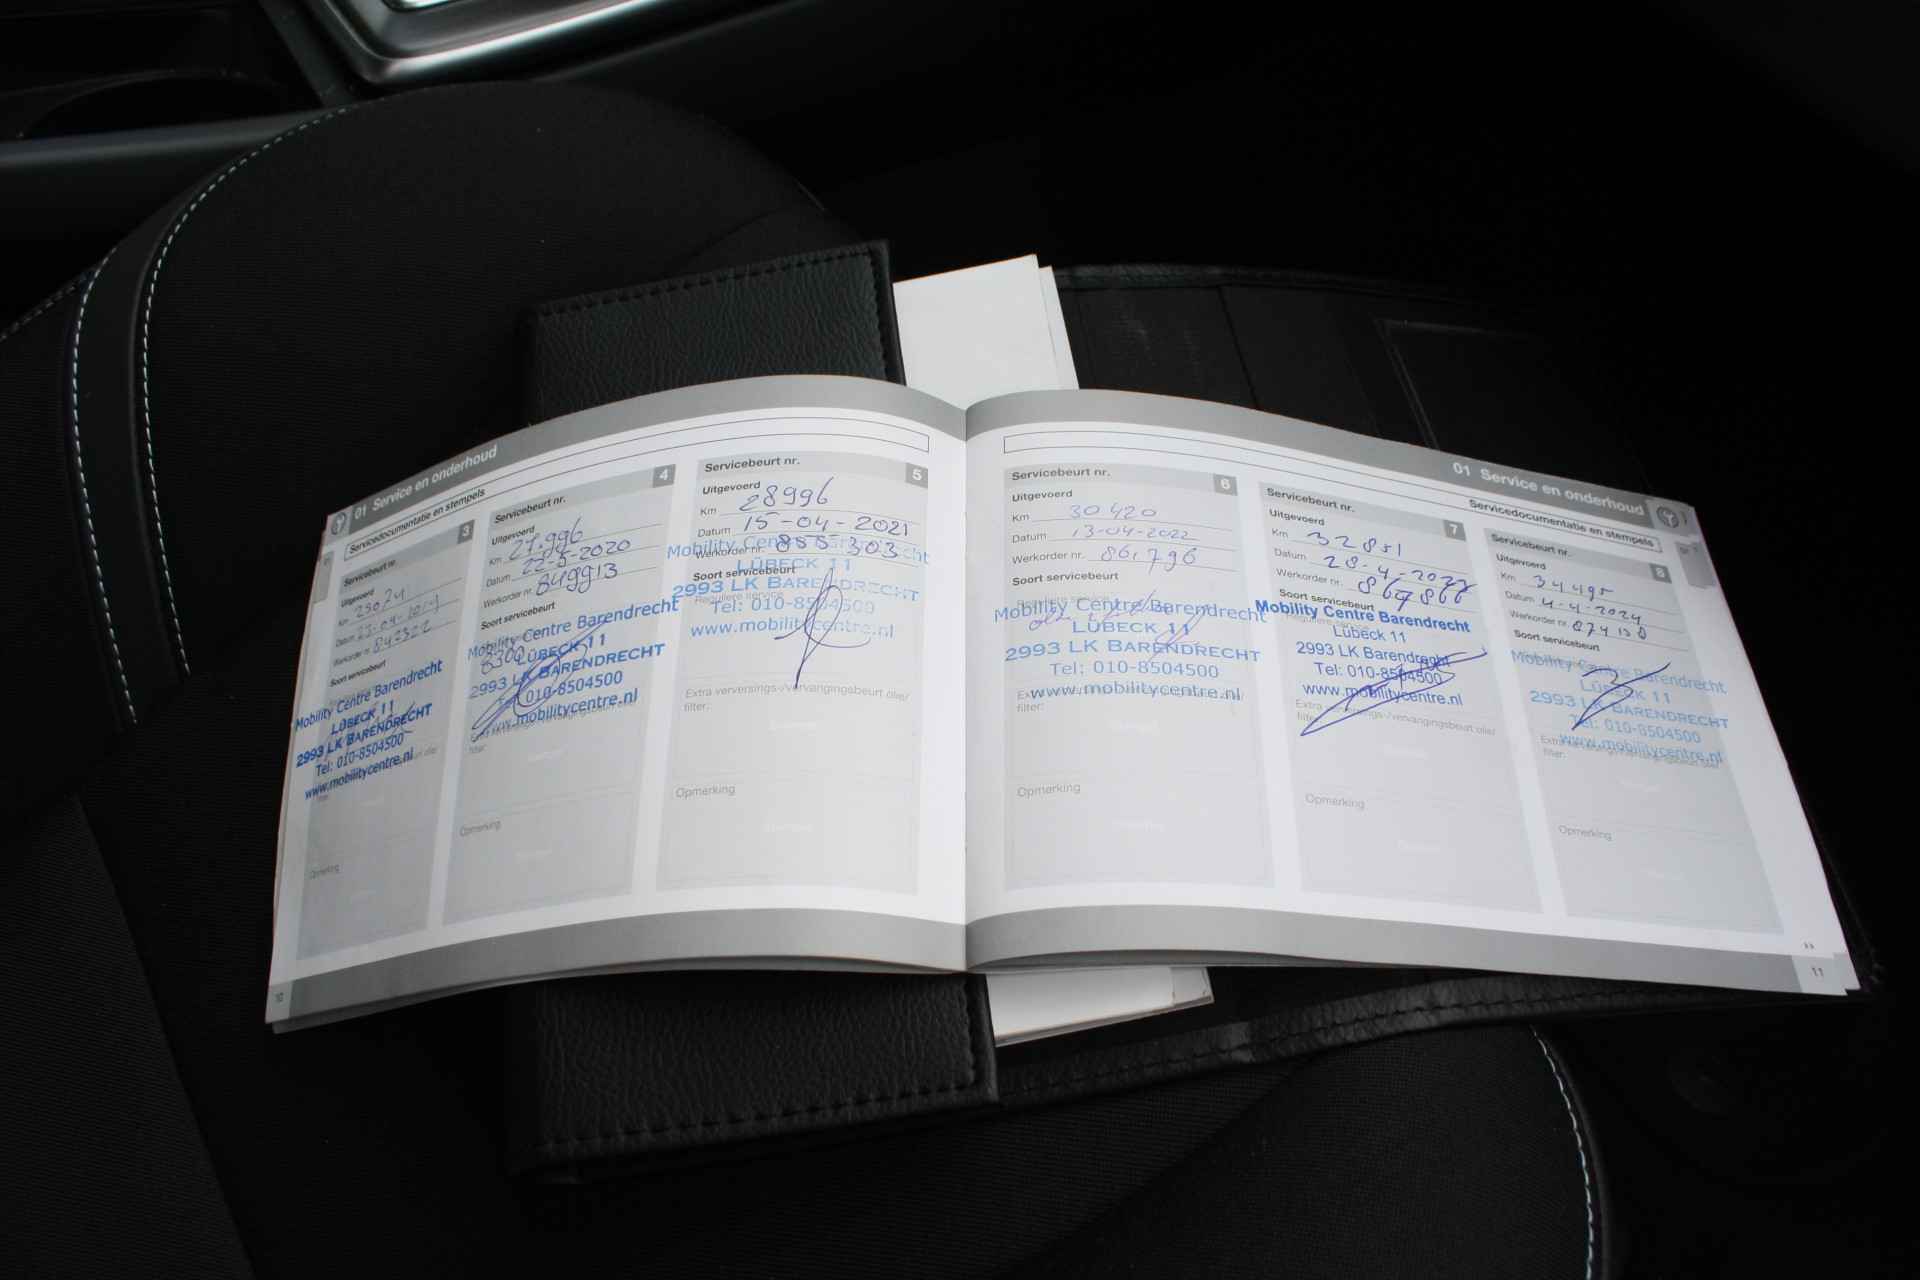 01 Service en onderhoud
Servicedocumentatie en stempels
Servicebeurt nr. 3
Uitgevoerd
Km
Datum
Werkorder nr.
Soort servicebeurt
Mobility Centre Barendrecht
LÜBECK 11
2993 LK BARENDRECHT
Tel: 010-8504500
www.mobilitycentre.nl
Opmerking
10
Servicebeurt nr. 4
Uitgevoerd
Km 27.996
Datum 22-5-2020
Werkorder nr. 849913
Soort servicebeurt
Mobility Centre Barendrecht
LÜBECK 11
2993 LK BARENDRECHT
010-8504500
www.mobilitycentre.nl
filter:
Opmerking
Servicebeurt nr. 5
Uitgevoerd
Km 28996
Datum 15-04-2021
Werkorder nr. 855303
Mobility Centre Barendrecht
LÜBECK 11
Soort servicebeurt
2993 LK BARENDRECHT
Reguliere service
Tel: 010-8504500
www.mobilitycentre.nl
Extra verversings-/vervangingsbeurt olie/
filter:
Opmerking
01 Service en onderhoud
Servicedocumentatie en stempels
Servicebeurt nr. 6
Uitgevoerd
Km 30420
Datum 13-04-2022
Werkorder nr. 861796
Soort servicebeurt
Reguliere service
Mobility Centre Barendrecht
LÜBECK 11
2993 LK BARENDRECHT
Tel: 010-8504500
www.mobilitycentre.nl
filter:
Opmerking
Servicebeurt nr. 7
Uitgevoerd
Km 32851
Datum
Werkorder nr.
Soort servicebeurt
Mobility Centre Barendrecht
Lübeck 11
2993 LK Barendrecht
Tel: 010-8504500
www.mobilitycentre.nl
Extra verversings-/vervangingsbeurt olie/
filter:
Opmerking
Servicebeurt nr. 8
Uitgevoerd
Km 34495
Datum 4-4-2024
Werkorder nr.
Soort servicebeurt
Mobility Centre Barendrecht
LÜBECK 11
2993 LK BARENDRECHT
Tel: 010-8504500
www.mobilitycentre.nl
filter:
Opmerking
11